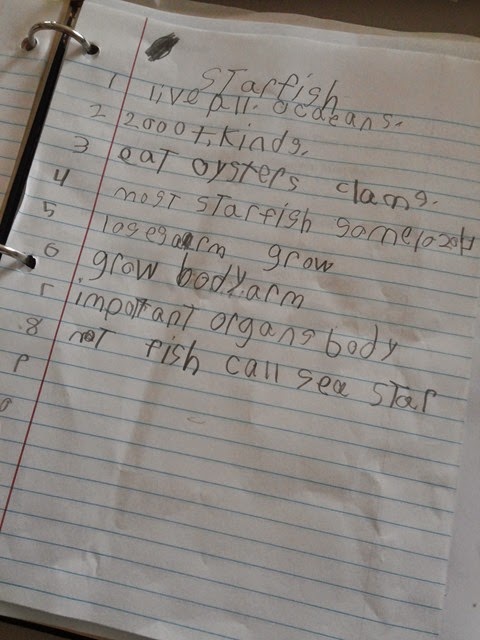 starfish
1 live all ocaeans.
2 2000+, kinds.
3 eat oysters clams.
4 most starfish
5 loses arm grow
6 grow body.arm
important organs body
8 not fish call sea star